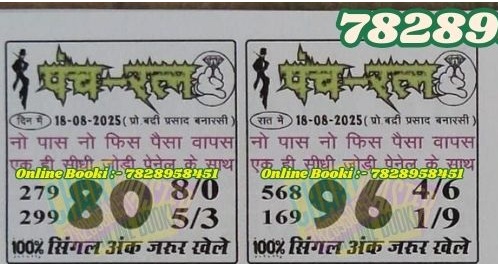 78289
पंच-रत्न
दिन में 18-08-2025 (प्रो. बद्री प्रसाद बनारसी)
नो पास नो फिस पैसा वापस
एक ही सीधी जोड़ी पेनेल के साथ
Online Booki :- 7828958451
279 80 8/0
299 5/3
100% सिंगल अंक जरुर खेले
पंच-रत्न
रात में 18-08-2025 (प्रो. बद्री प्रसाद बनारसी)
नो पास नो फिस पैसा वापस
एक ही सीधी जोड़ी पेनेल के साथ
Online Booki :- 7828958451
568 96 4/6
169 1/9
100% सिंगल अंक जरुर खेले